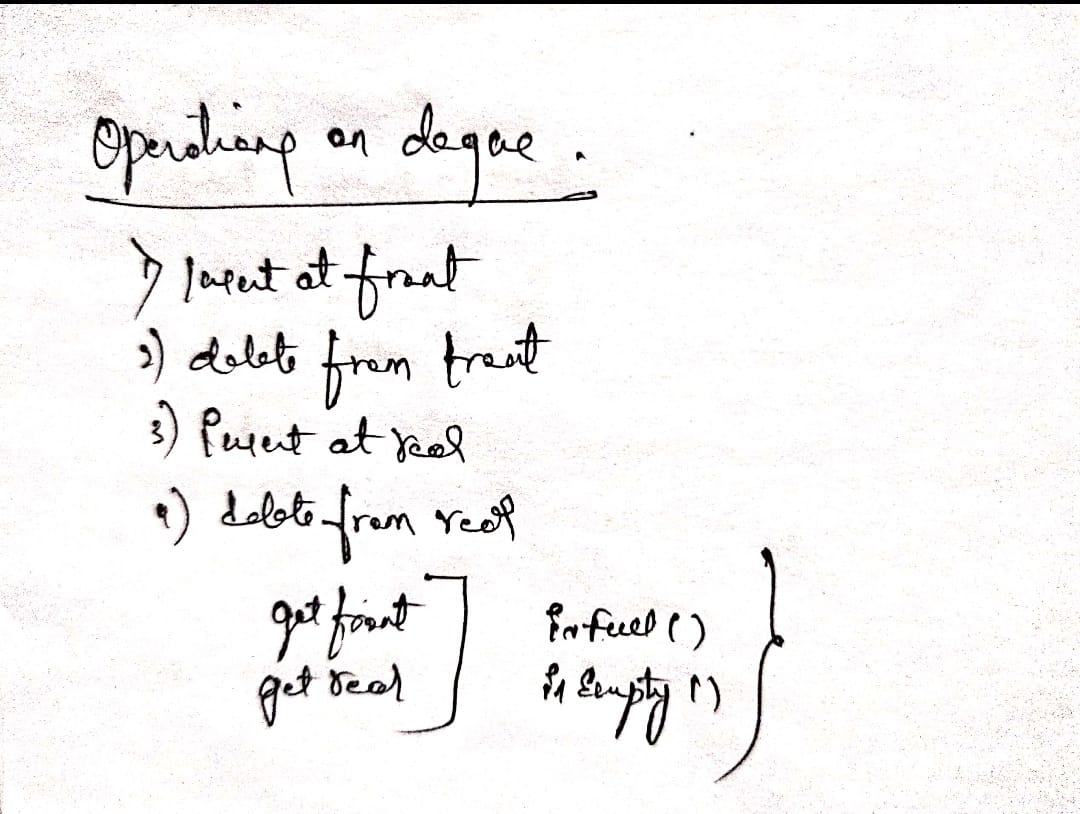 Operations on deque.
1) Insert at front
2) delete from front
3) Insert at rear
4) delete from rear
get front ] isfull ()
get rear isEmpty () }